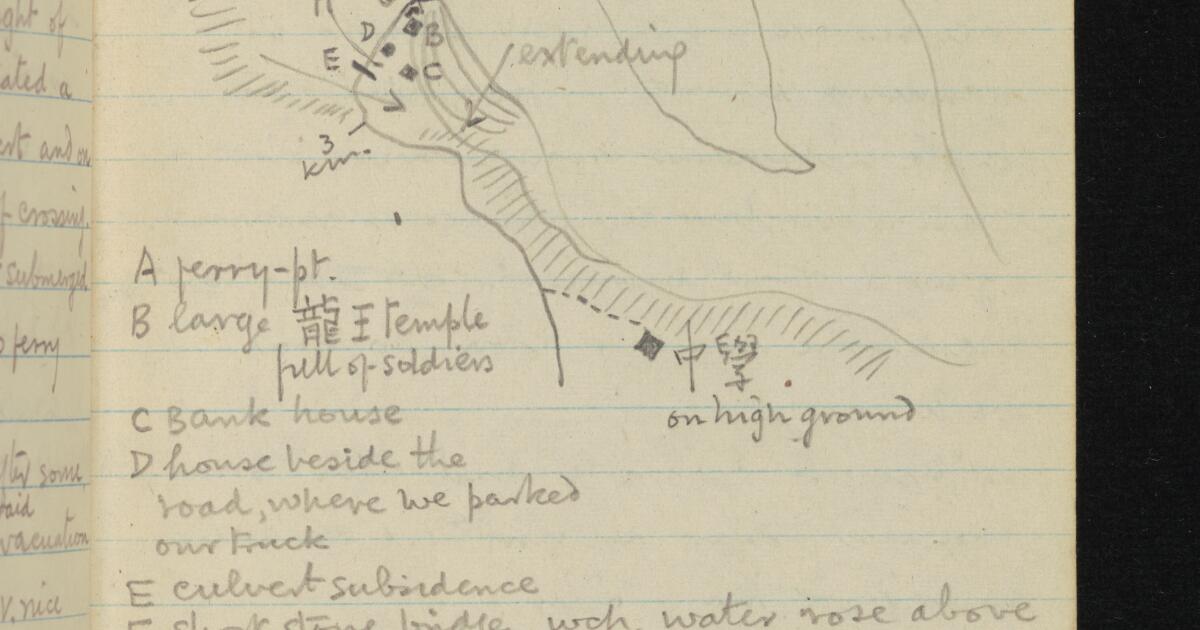 ght of
ated a
crossing.
submerged
ferry
some
said
evacuation
v. nice
D
B
E
C
extending
3
km.
A ferry-pt.
B large 龍王 temple
full of soldiers
中學
on high ground
C Bank house
D house beside the
road, where we parked
our truck
E culvert subsidence
F stone bridge, wch. water rose above